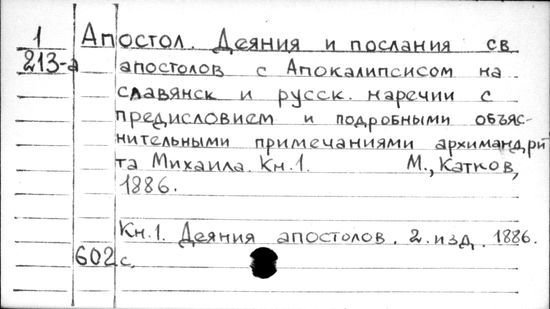 1 Апостол. Деяния и послания св.
213-а апостолов с Апокалипсисом на
славянск и русск. наречии с
предисловием и подробными объяс-
нительными примечаниями архимандри
та Михаила. Кн.1. М., Катков,
1886.
Кн.1. Деяния апостолов. 2. изд. 1886.
602 с.